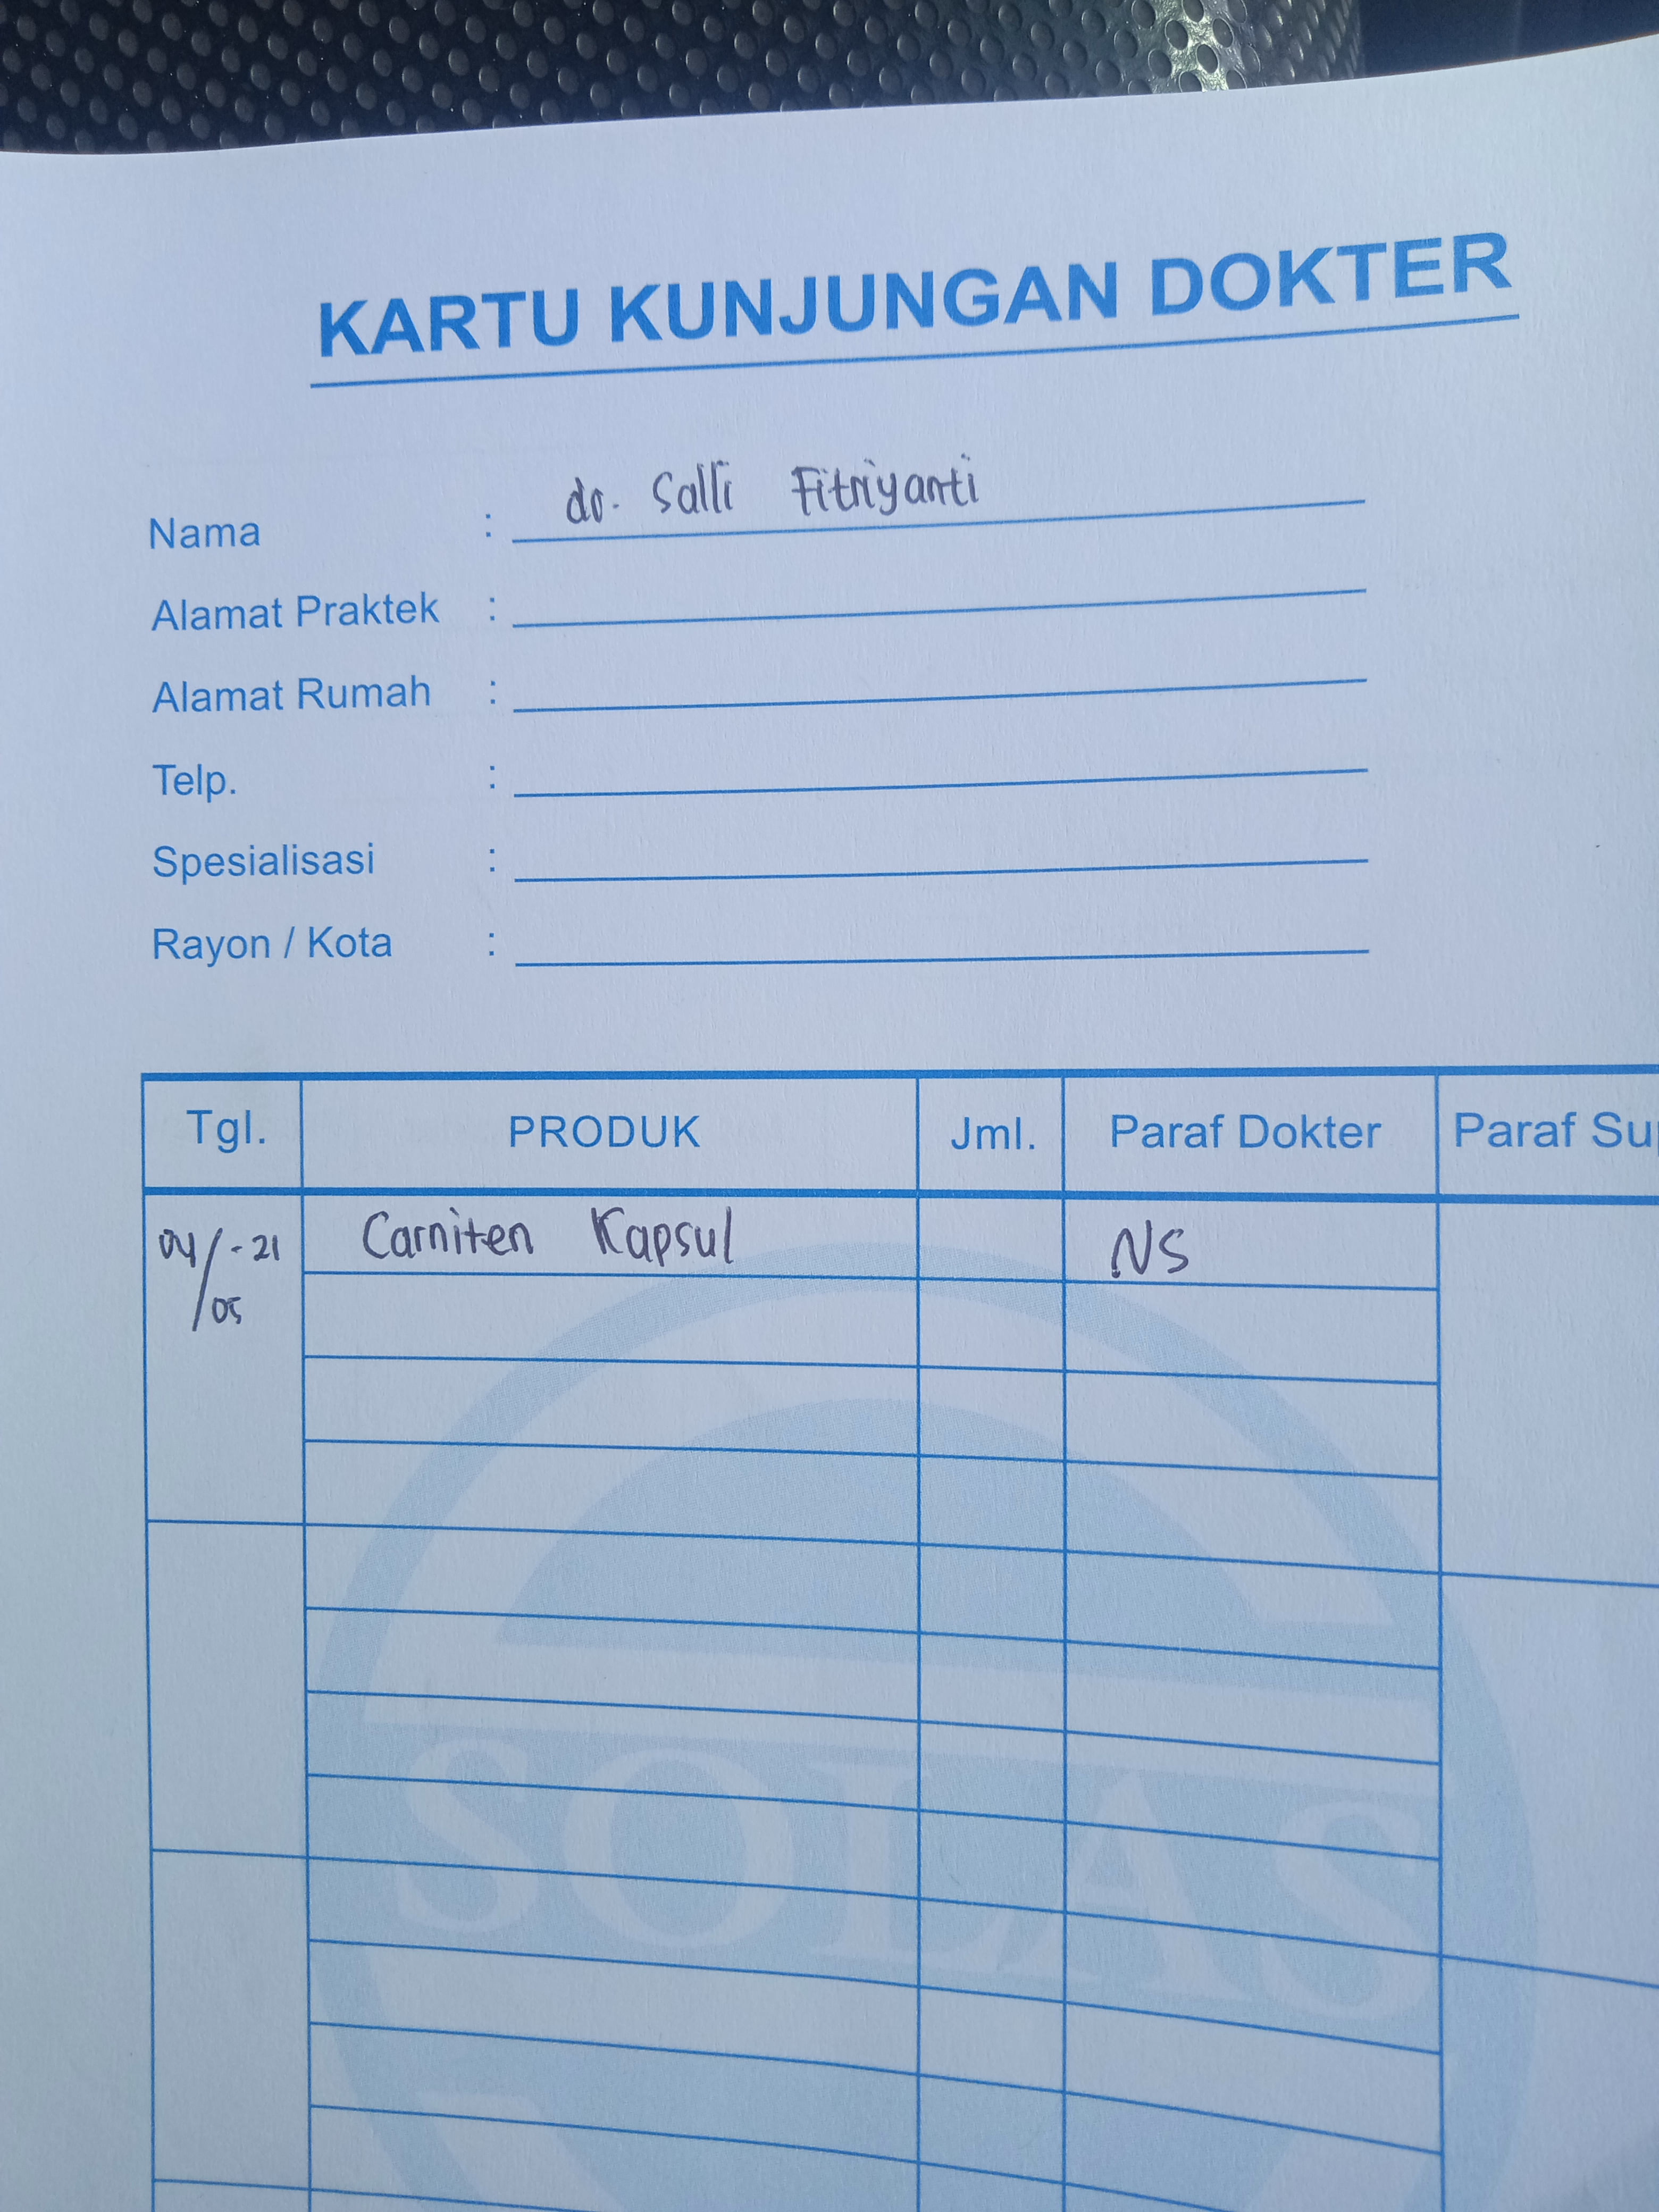 KARTU KUNJUNGAN DOKTER
Nama : dr. Salli Fitriyanti
Alamat Praktek :
Alamat Rumah :
Telp. :
Spesialisasi :
Rayon / Kota :
Tgl. PRODUK Jml. Paraf Dokter Paraf Su
04/05-21 Carniten Kapsul NS
SOLAS